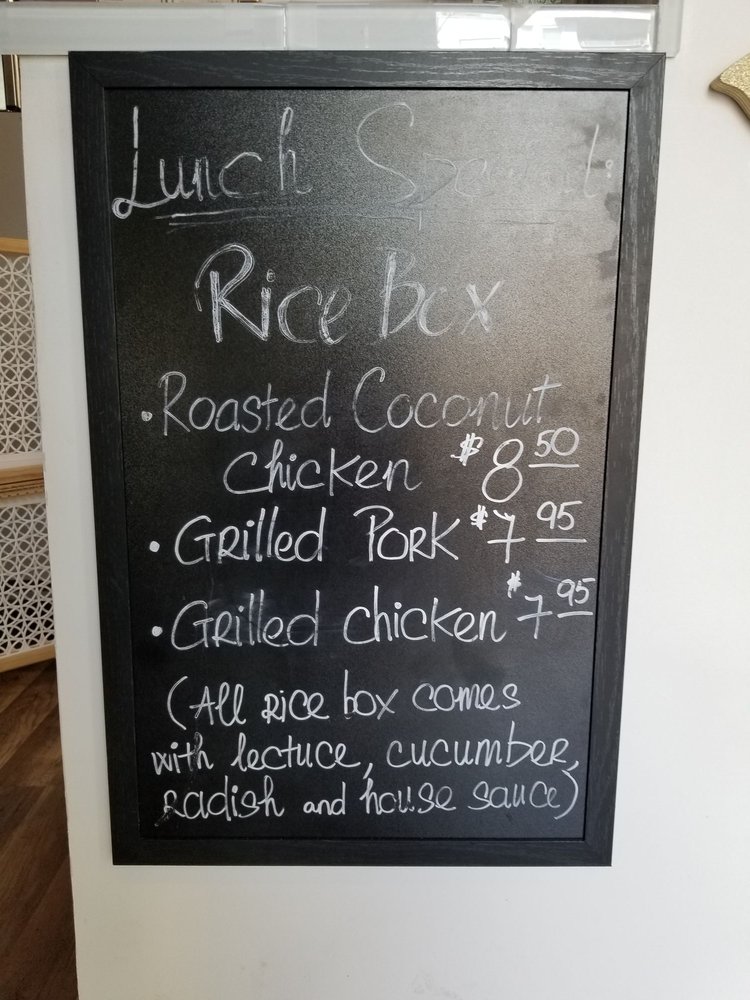 Lunch Special:
Rice Box
• Roasted Coconut
Chicken $8 50
• Grilled Pork $7 95
• Grilled chicken $7 95
(All rice box comes
with lectuce, cucumber,
radish and house sauce)